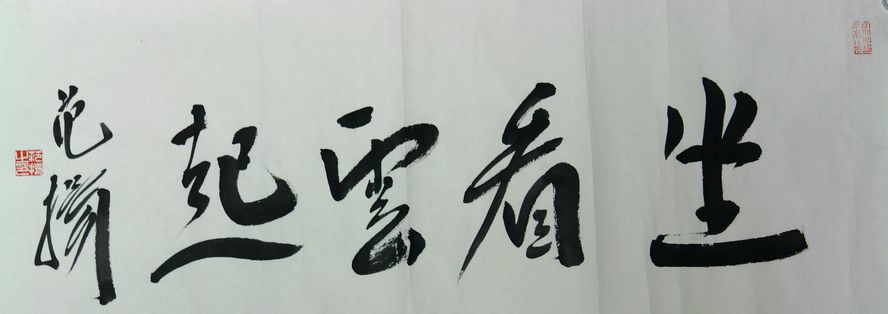 坐看雲起
范揚